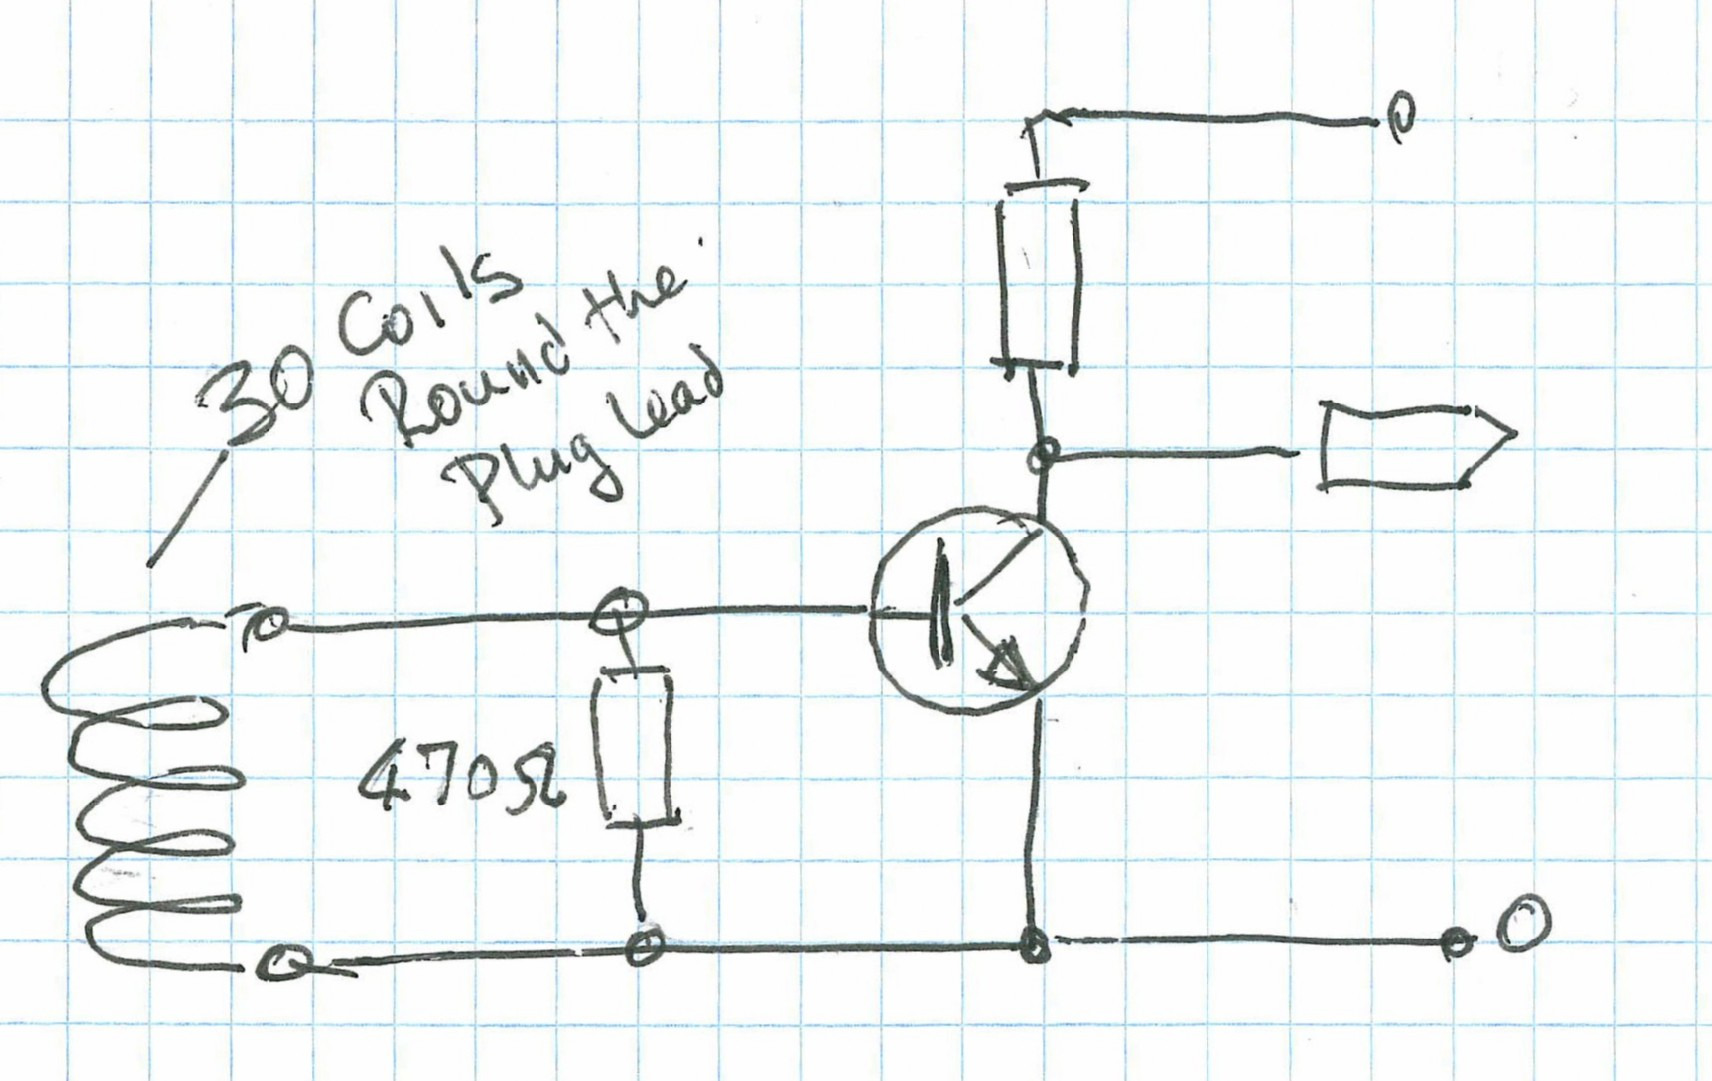 30 Coils
Round the
Plug lead
470Ω
0